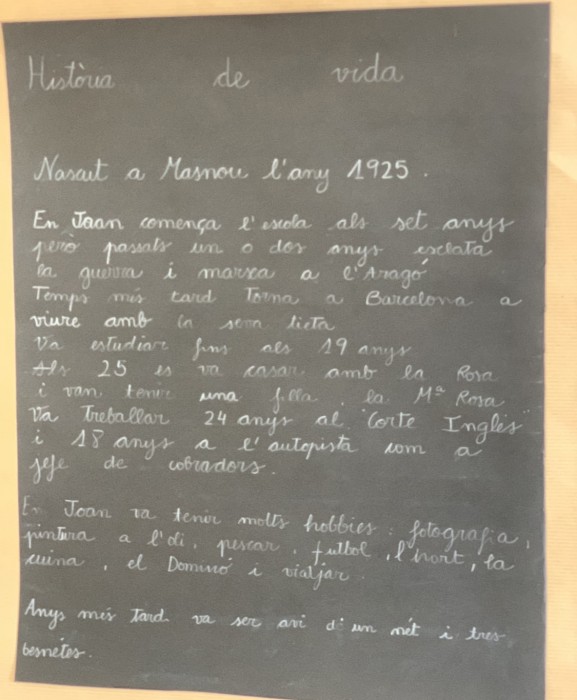 Història de vida
Nascut a Masnou l'any 1925.
En Joan comença l'escola als set anys
però passats un o dos anys esclata
la guerra i marxa a l'Aragó
Temps més tard Torna a Barcelona a
viure amb la seva tieta
Va estudiar fins als 19 anys
Als 25 es va casar amb la Rosa
i van tenir una filla, la Mª Rosa
Va Treballar 24 anys al "Corte Inglés"
i 18 anys a l'autopista com a
jefe de cobradors.
En Joan va tenir molts hobbies: fotografia,
pintura a l'oli, pescar, futbol, l'hort, la
cuina, el Dominó i viatjar.
Anys més tard va ser avi d'un nét i tres
besnétes.